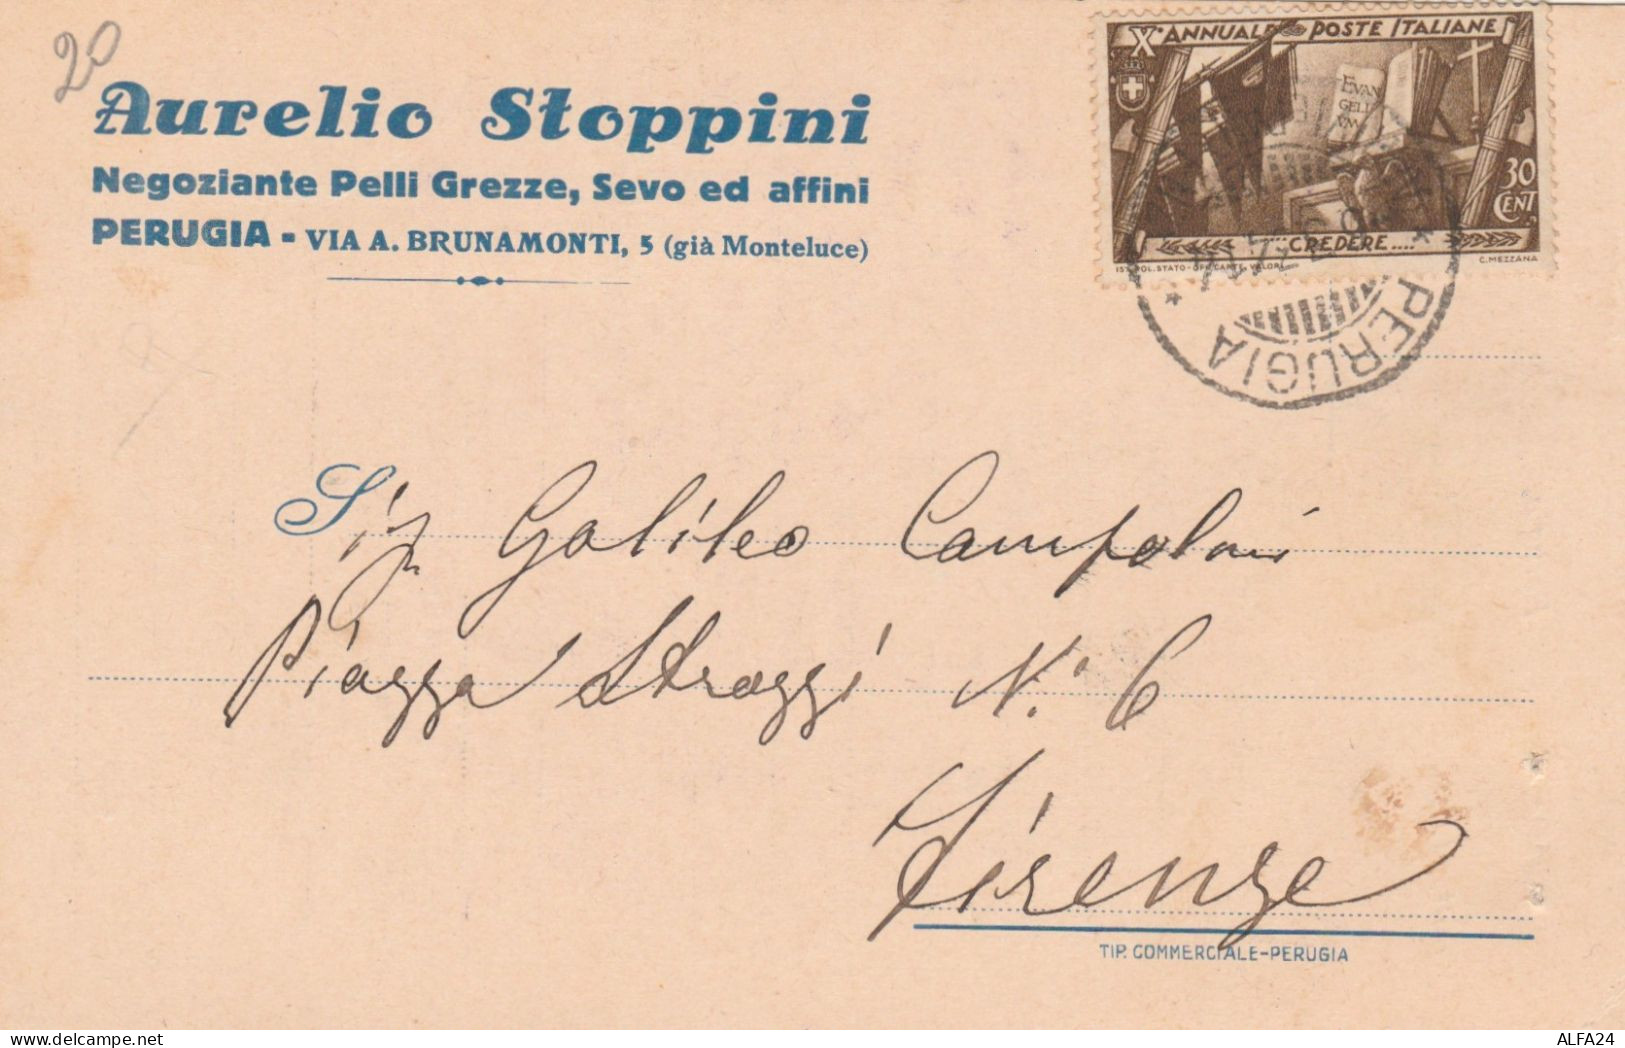 20
Aurelio Stoppini
Negoziante Pelli Grezze, Sevo ed affini
PERUGIA - VIA A. BRUNAMONTI, 5 (già Monteluce)
X° ANNUALE POSTE ITALIANE
EVAN
GELI
VM
30
CENT
....CREDERE....
IST. POL. STATO - OFF. CARTE, VALORI
C. MEZZANA
PERUGIA
Sig Galileo Campolmi
Piazza Strozzi N. 6
Firenze
TIP. COMMERCIALE-PERUGIA
ALFA24
www.delcampe.net